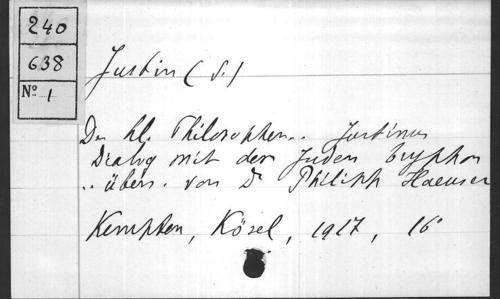 240
638
No 1
Justin (S.)
Des hl. Philosophen .. Justinus
Dialog mit dem Juden Tryphon
.. übers. von Dr Philipp Haeuser
Kempten, Kösel, 1917, 16°